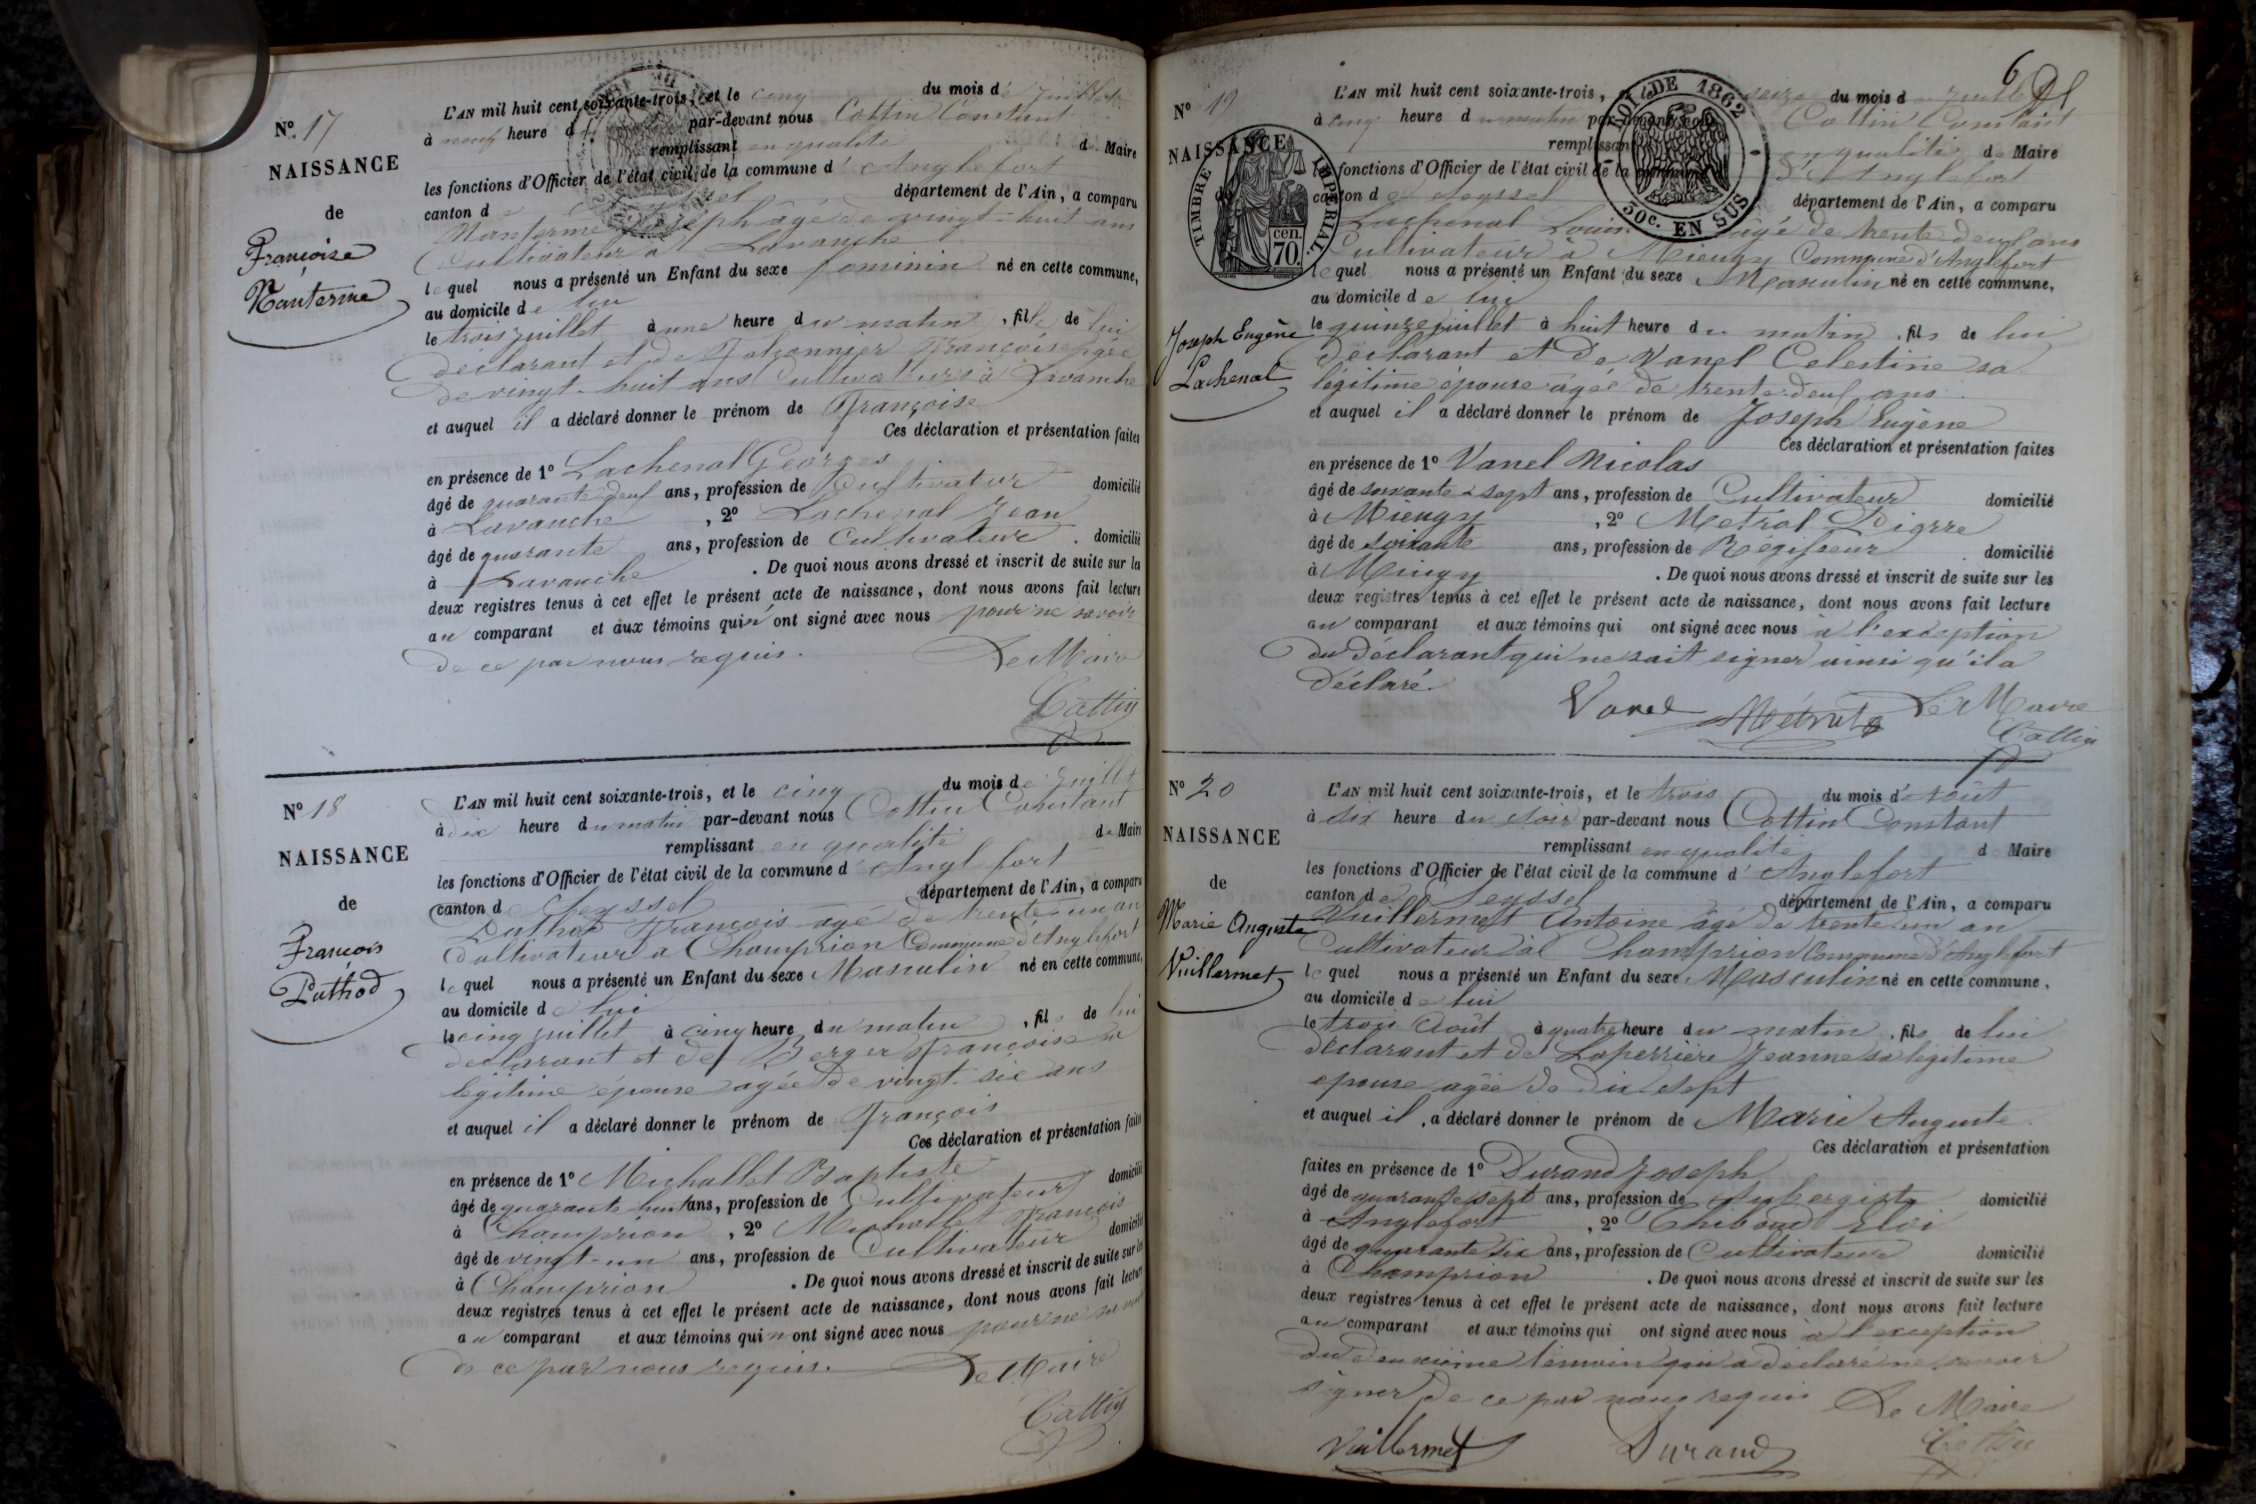 N° 17
NAISSANCE
de
Françoise
Nanterme
L'AN mil huit cent soixante-trois, et le cinq du mois de juillet
à neuf heure d par-devant nous Cottin Constant
remplissant en qualité de Maire
les fonctions d'Officier de l'état civil de la commune d'Anglefort
canton d département de l'Ain, a comparu
Nanterme Joseph âgé de vingt-huit ans
Cultivateur à Lavanche
lequel nous a présenté un Enfant du sexe féminin né en cette commune,
au domicile de lui
le trois juillet à une heure du matin, fille de lui
déclarant et de Falconnier Françoise âgée
de vingt-huit ans Cultivateurs à Lavanche
et auquel il a déclaré donner le prénom de Françoise
Ces déclaration et présentation faites
en présence de 1° Lachenal Georges
âgé de quarante-deux ans, profession de Cultivateur domicilié
à Lavanche, 2° Lachenal Jean
âgé de quarante ans, profession de Cultivateur. domicilié
à Lavanche. De quoi nous avons dressé et inscrit de suite sur les
deux registres tenus à cet effet le présent acte de naissance, dont nous avons fait lecture
au comparant et aux témoins qui n'ont signé avec nous pour ne savoir
de ce par nous requis. Le Maire
Cottin
N° 18
NAISSANCE
de
François
Puthod
L'AN mil huit cent soixante-trois, et le cinq du mois de juillet
à dix heure du matin par-devant nous Cottin Constant
remplissant en qualité de Maire
les fonctions d'Officier de l'état civil de la commune d'Anglefort
canton de Seyssel département de l'Ain, a comparu
Puthod François âgé de trente-un an
Cultivateur à Champrion Commune d'Anglefort
lequel nous a présenté un Enfant du sexe Masculin né en cette commune,
au domicile de lui
le cinq juillet à cinq heure du matin, fils de lui
déclarant et de Berger Françoise sa
légitime épouse âgée de vingt-six ans
et auquel il a déclaré donner le prénom de François
Ces déclaration et présentation faites
en présence de 1° Michallet Baptiste
âgé de quarante-huit ans, profession de Cultivateur domicilié
à Champrion, 2° Michallet François
âgé de vingt-un ans, profession de Cultivateur domicilié
à Champrion. De quoi nous avons dressé et inscrit de suite sur les
deux registres tenus à cet effet le présent acte de naissance, dont nous avons fait lecture
au comparant et aux témoins qui n'ont signé avec nous pour ne savoir
de ce par nous requis. Le Maire
Cottin
6
N° 19
NAISSANCE
TIMBRE IMPERIAL
70 cen.
LOI DE 1862
30c. EN SUS
Joseph Eugène
Lachenal
L'AN mil huit cent soixante-trois, seize du mois de juillet
à cinq heure du matin par-devant nous Cottin Constant
remplissant en qualité de Maire
les fonctions d'Officier de l'état civil de la commune d'Anglefort
canton de Seyssel département de l'Ain, a comparu
Lachenal Louis âgé de trente-deux ans
Cultivateur à Mieugy Commune d'Anglefort
lequel nous a présenté un Enfant du sexe Masculin né en cette commune,
au domicile de lui
le quinze juillet à huit heure du matin, fils de lui
déclarant et de Vanel Celestine sa
légitime épouse âgée de trente-deux ans
et auquel il a déclaré donner le prénom de Joseph Eugène
Ces déclaration et présentation faites
en présence de 1° Vanel Nicolas
âgé de soixante-sept ans, profession de Cultivateur domicilié
à Mieugy, 2° Metral Pierre
âgé de soixante ans, profession de Régisseur domicilié
à Mieugy. De quoi nous avons dressé et inscrit de suite sur les
deux registres tenus à cet effet le présent acte de naissance, dont nous avons fait lecture
au comparant et aux témoins qui ont signé avec nous à l'exception
du déclarant qui ne sait signer ainsi qu'il a
déclaré.
Vanel Métral Le Maire
Cottin
N° 20
NAISSANCE
de
Marie Auguste
Vuillermet
L'AN mil huit cent soixante-trois, et le trois du mois d'août
à six heure du soir par-devant nous Cottin Constant
remplissant en qualité d Maire
les fonctions d'Officier de l'état civil de la commune d'Anglefort
canton de Seyssel département de l'Ain, a comparu
Vuillermet Antoine âgé de trente-un an
Cultivateur à Champrion Commune d'Anglefort
lequel nous a présenté un Enfant du sexe Masculin né en cette commune,
au domicile de lui
le trois Août à quatre heure du matin, fils de lui
déclarant et de Laperrière Jeanne sa légitime
épouse âgée de dix-sept
et auquel il a déclaré donner le prénom de Marie Auguste
Ces déclaration et présentation
faites en présence de 1° Durand Joseph
âgé de quarante-sept ans, profession de Aubergiste domicilié
à Anglefort, 2° Thiboud Eloi
âgé de quarante-six ans, profession de Cultivateur domicilié
à Champrion. De quoi nous avons dressé et inscrit de suite sur les
deux registres tenus à cet effet le présent acte de naissance, dont nous avons fait lecture
au comparant et aux témoins qui ont signé avec nous à l'exception
du deuxième témoin qui a déclaré ne savoir
signer de ce par nous requis Le Maire
Vuillermet Durand Cottin